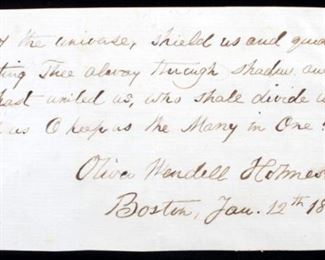 of the universe, shield us and guid
ting Thee alway through shadow and
hast united us, who shall divide u
us O keep us the Many in One
Oliver Wendell Holmes
Boston, Jan. 12th 18